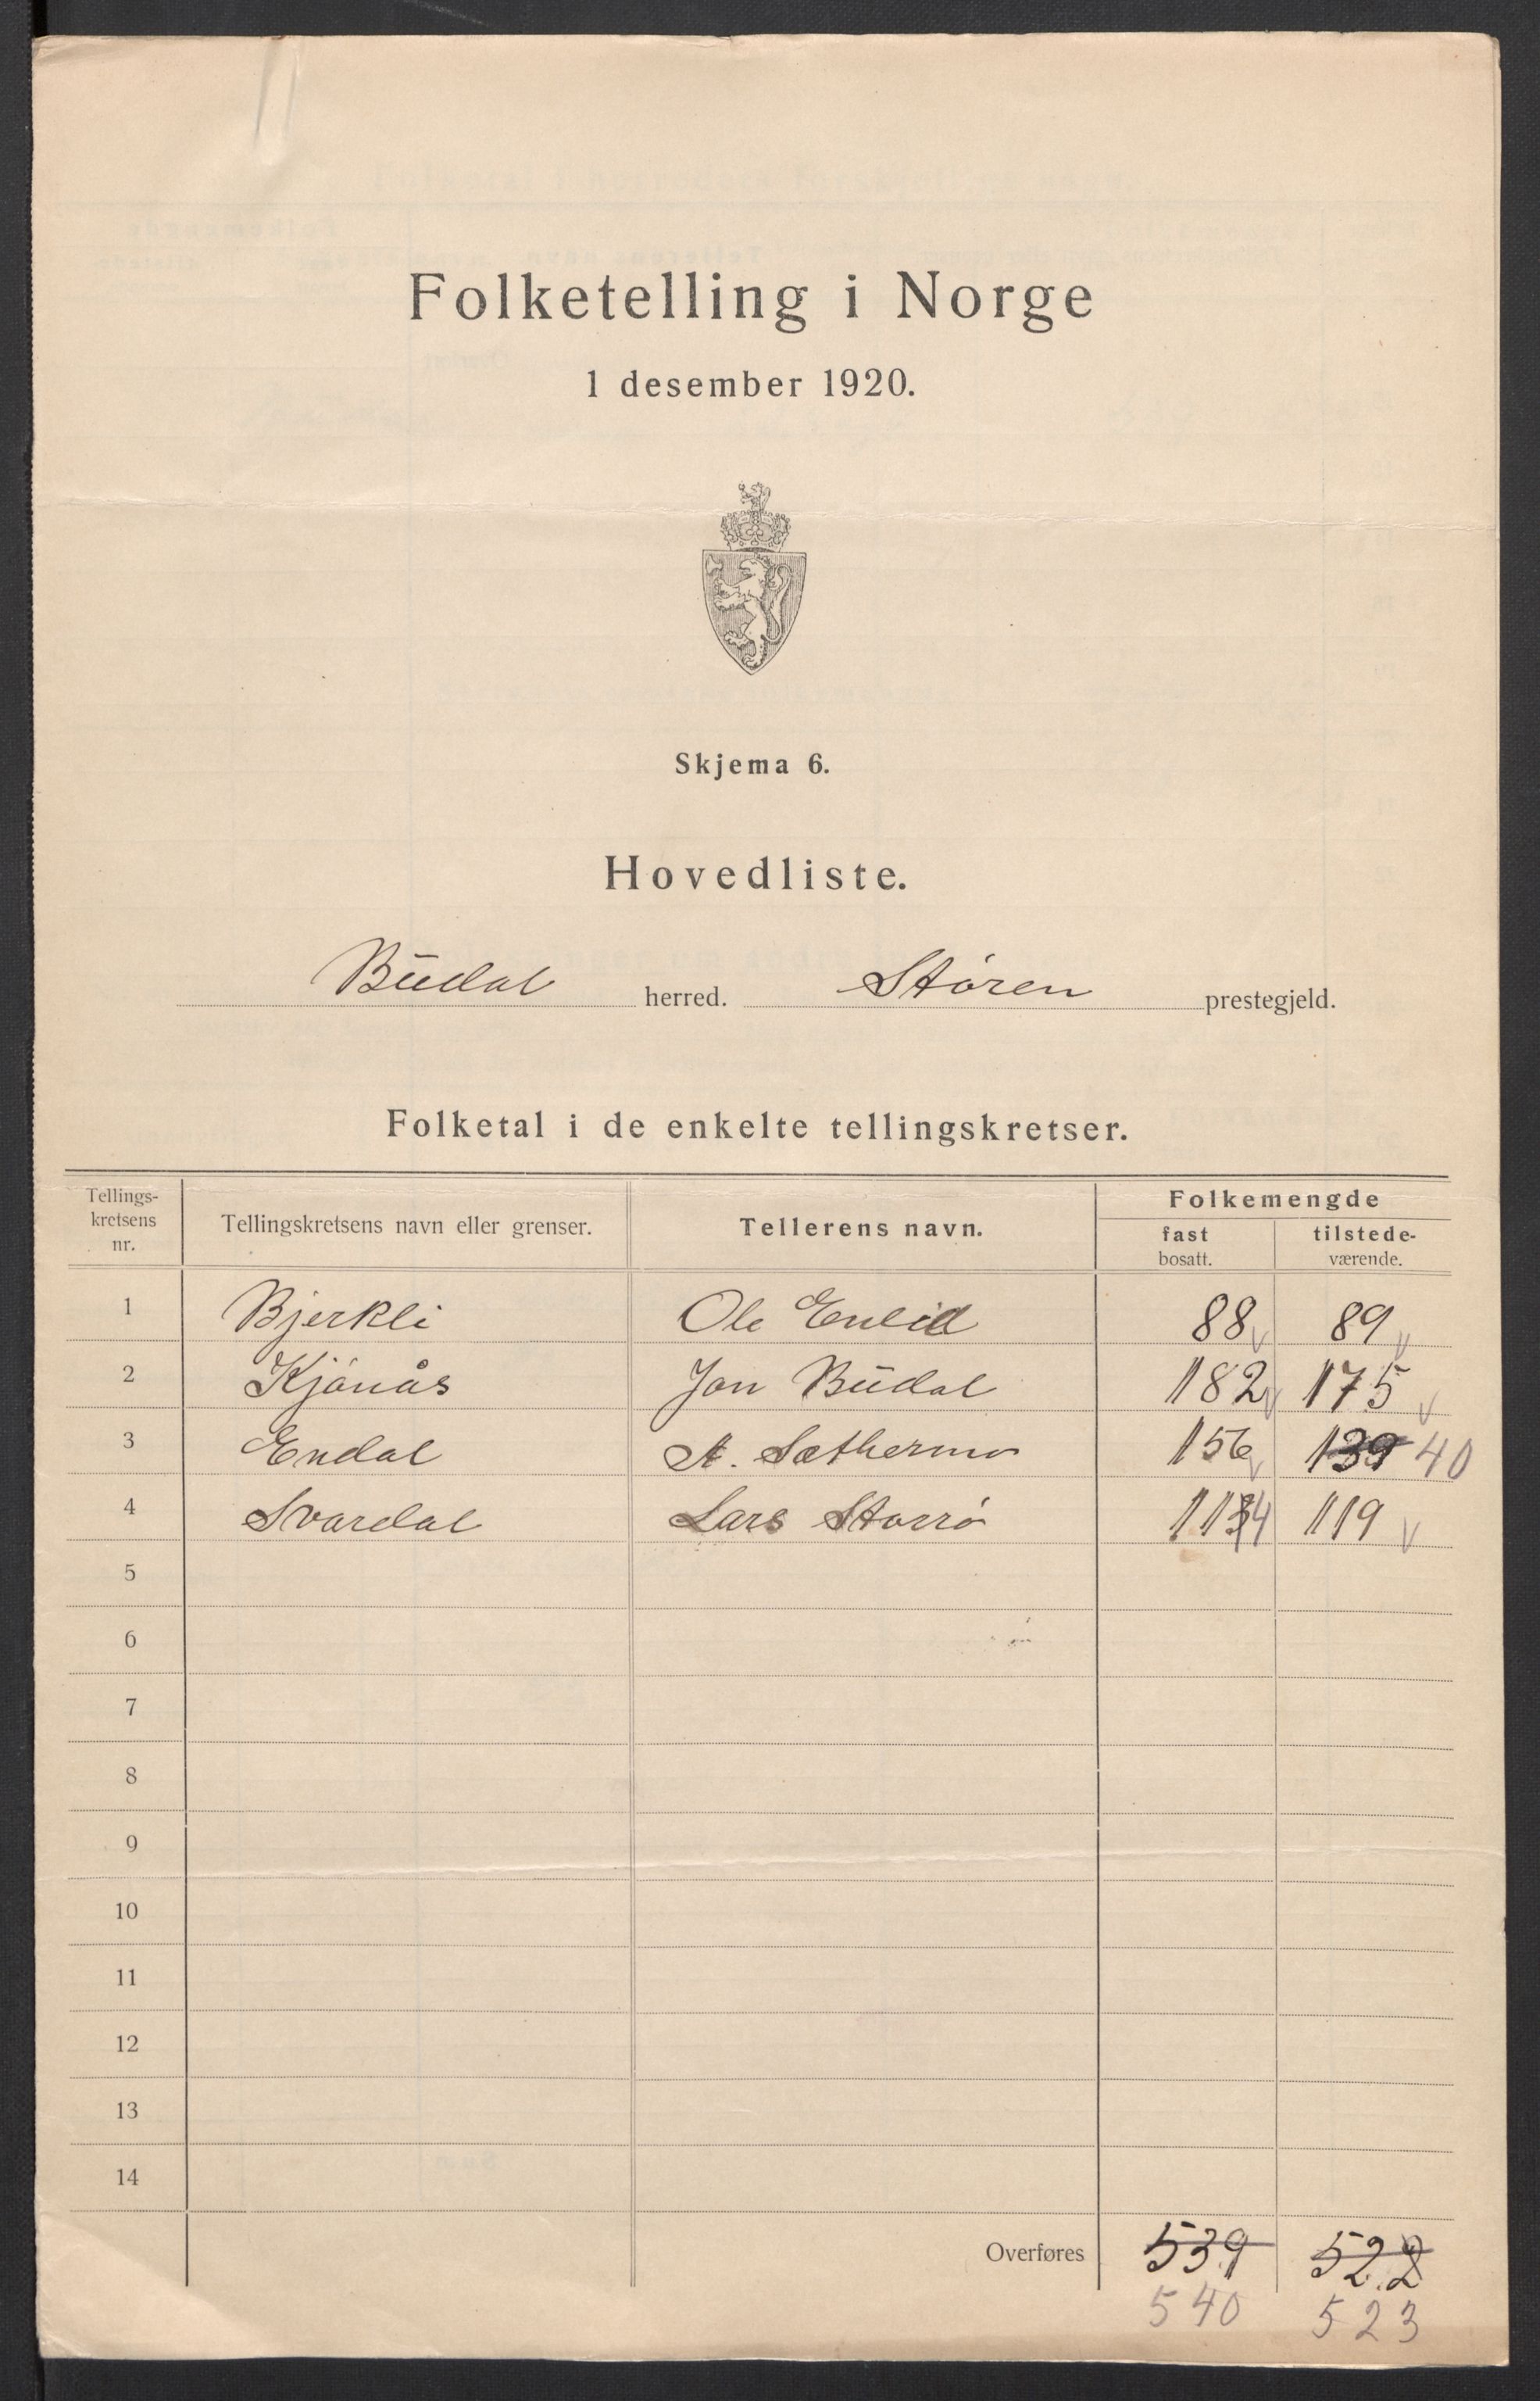 Folketelling i Norge
1 desember 1920.
Skjema 6.
Hovedliste.
Budal herred. Støren prestegjeld.
Folketal i de enkelte tellingskretser.
Tellings-kretsens nr. Tellingskretsens navn eller grenser. Tellerens navn. Folkemengde fast bosatt. tilstede-værende.
1 Bjerkli Ole Enlid 88 v 89 v
2 Kjønås Jon Budal 182 v 175 v
3 Endal A. Sæthermo 156 v 139 40
4 Svardal Lars Storrø 113 4 119 v
5
6
7
8
9
10
11
12
13
14
Overføres 539 522
540 523